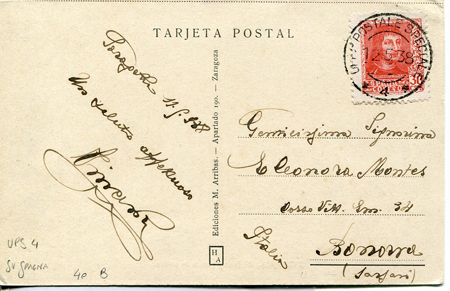 TARJETA POSTAL
UFF° POSTALE SPECIALE
4
30
Saragozza 11.5.38
Un saluto affettuoso
Ediciones M. Arribas. - Apartado 190. - Zaragoza
H
A
Gentilissima Signorina
Eleonora Montes
Corso Vitt. Em. 34
Bonorva
(Sassari)
Italia
UPS 4
SV SPAGNA
40 B